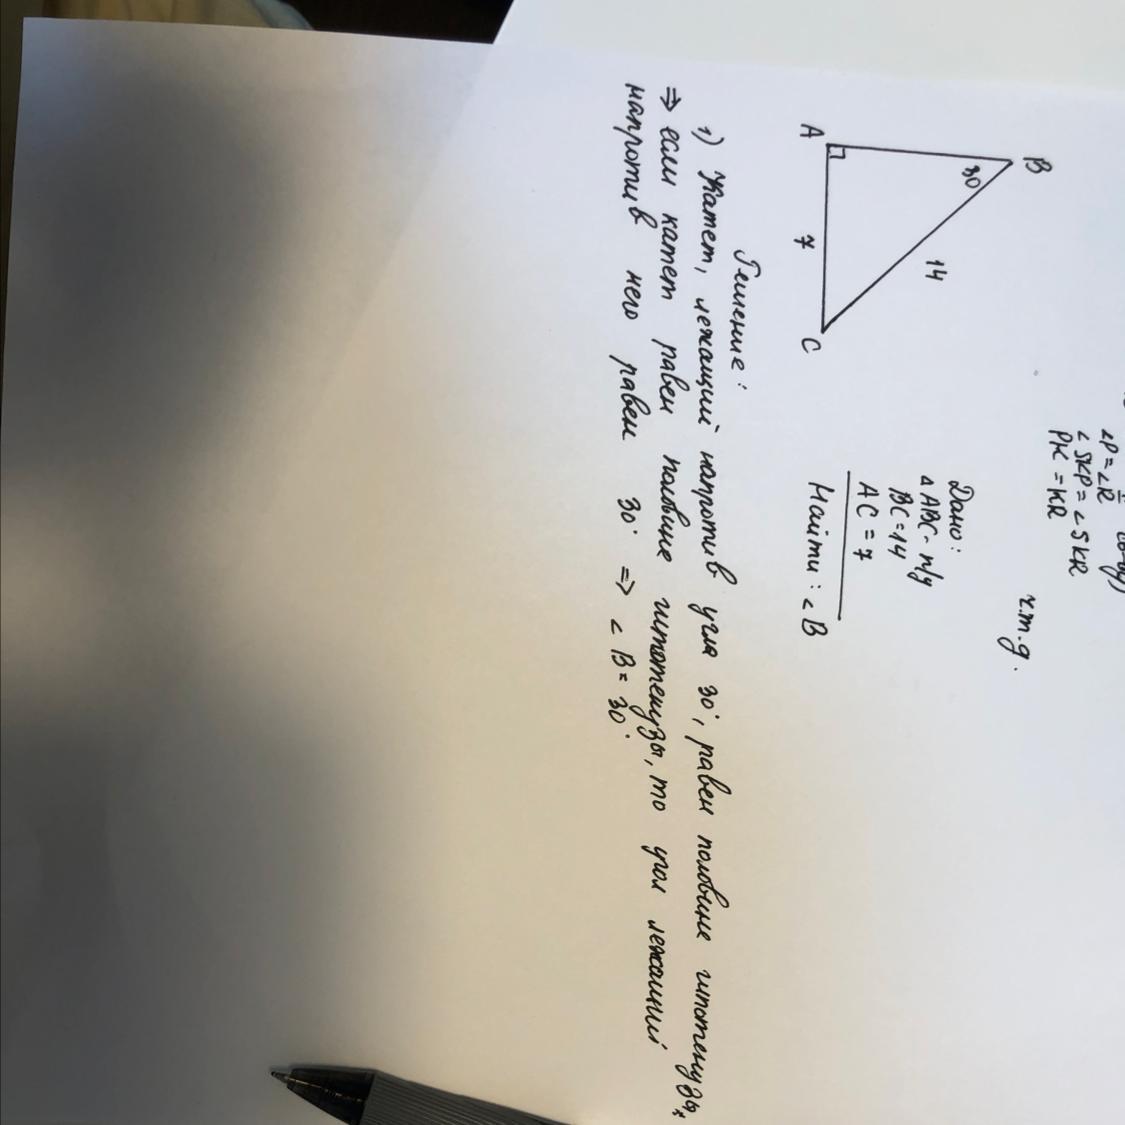 ∠P = ∠R
∠SKP = ∠SKR
PK = KR
ч.т.д.
B
30
14
A
7
C
Дано:
△ABC - п/у
BC = 14
AC = 7
Найти: ∠B
Решение:
1) Катет, лежащий напротив угла 30°, равен половине гипотенузы,
⇒ если катет равен половине гипотенузы, то угол лежащий
напротив него равен 30° ⇒ ∠B = 30°.